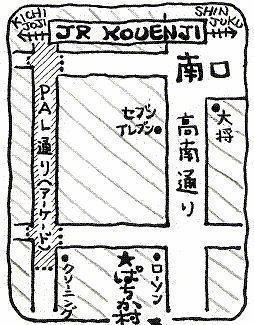 KICHI
JOJI
JR KOUENJI
SHIN
JUKU
南口
PAL通り(アーケード)
セブン
イレブン
高南通り
大将
クリーニング
★ぱちか村
ローソン